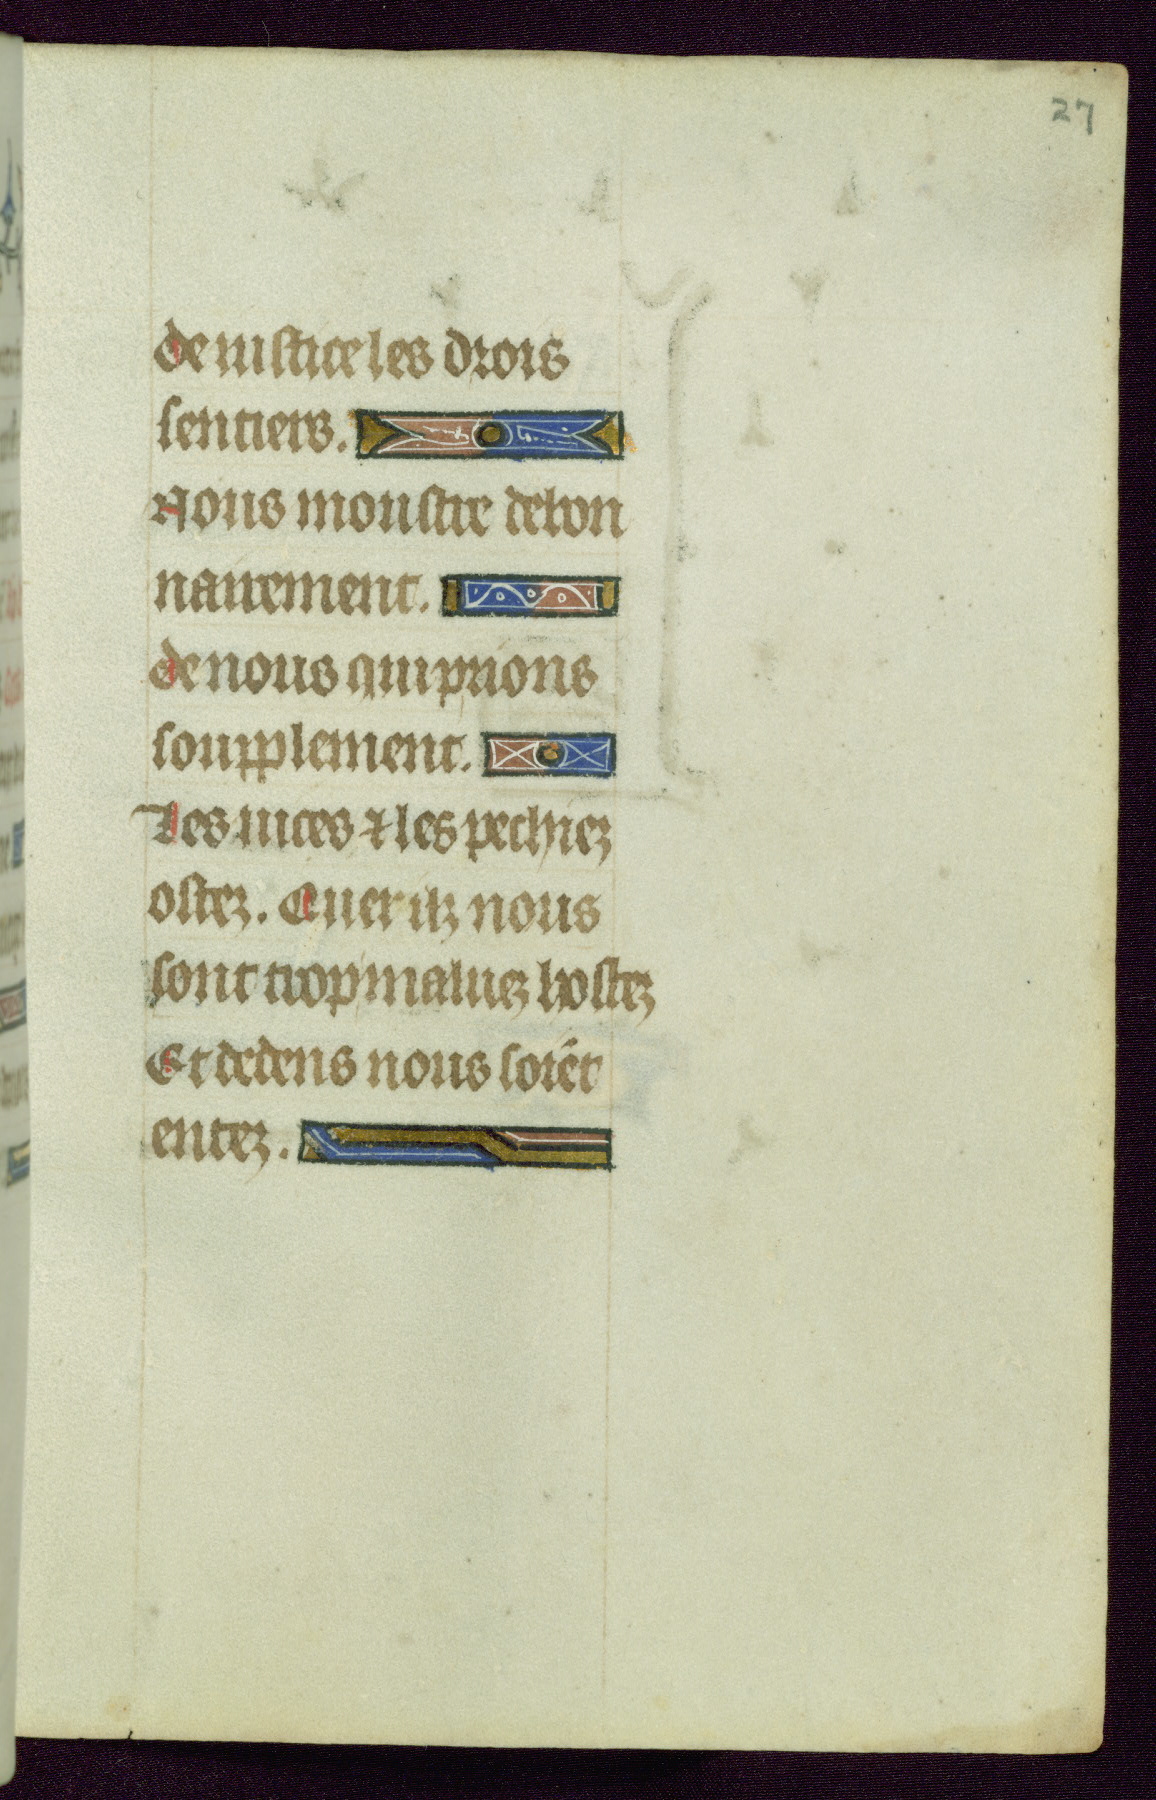 27
de iustice les drois
sentiers.
Nous moustre debon
nairement.
de nous qui prions
soupplement.
Les uices ⁊ les pechiez
ostez. Quer ilz nous
sont trop maluez hostez
Et dedens nous soiẽt
entez.